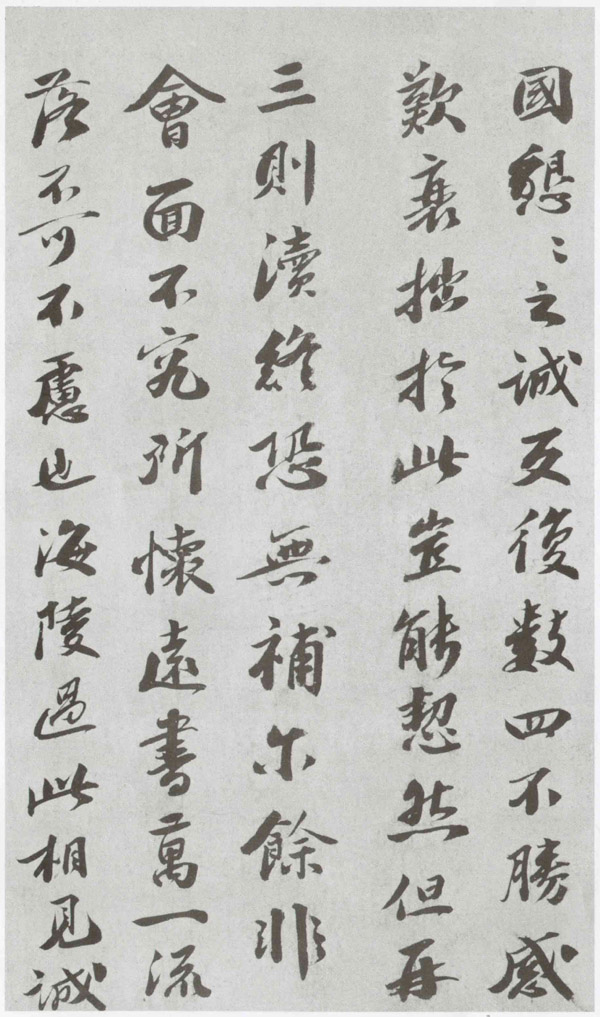 國懇〻之誠反復數四不勝感
歎衰拙於此豈能恝然但再
三則瀆終恐無補尒餘非
會面不究所懷遠書萬一流
落不可不慮也海陵過此相見誠